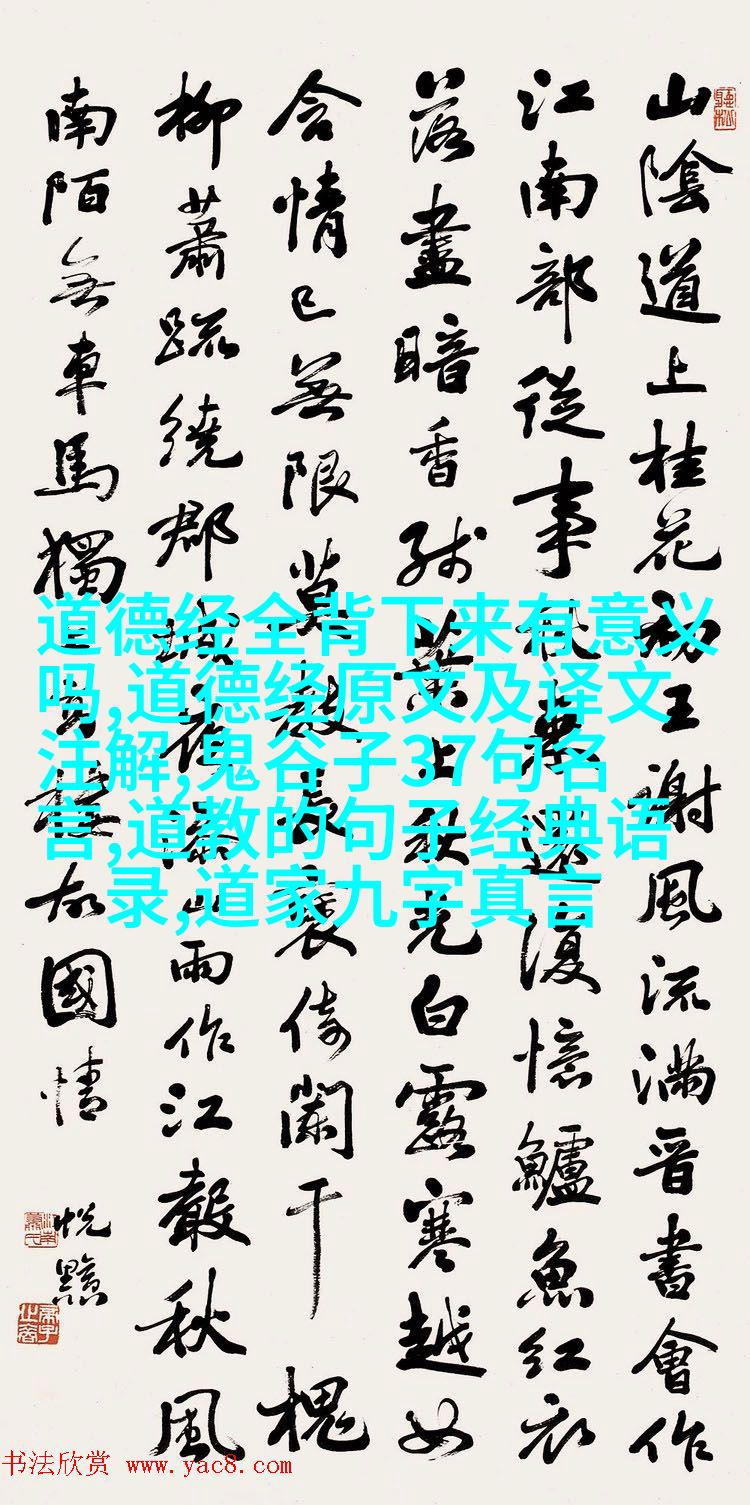 山陰道上桂花初王謝風流滿晉書會作
江南部從事秋風還復憶鱸魚紅衣
落盡暗香殘葉上秋光白露寒越女
含情已無限莫教長袖倚闌干槐
柳蕭疏繞郡城夜添山雨作江聲秋風
南陌無車馬獨上高樓故國情
道德经全背下来有意义
吗,道德经原文及译文
注解,鬼谷子37句名
言,道教的句子经典语
录,道家九字真言
书法欣赏 www.yac8.com